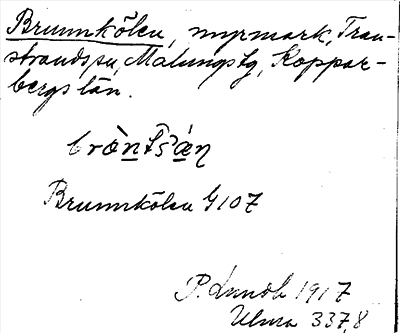 Brunnkölen, myrmark, Tran-
strands sn, Malungs tg, Koppar-
bergs län.
Brunnkölen G107
P. Lundh 1917
Ulma 337,8